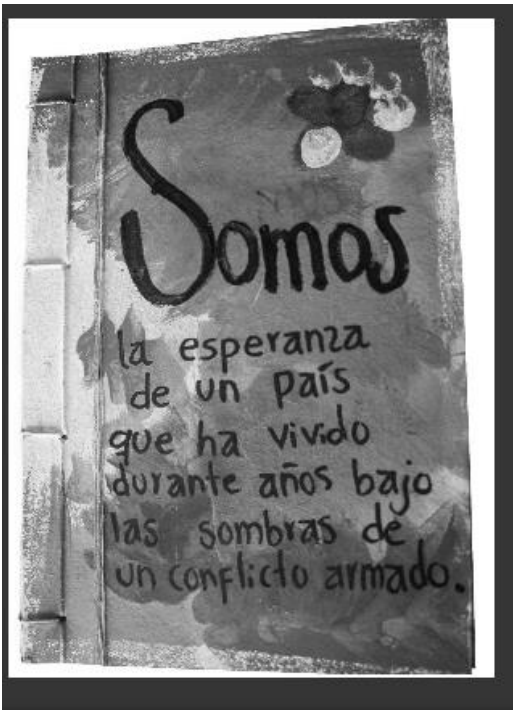 Somos
la esperanza
de un país
que ha vivido
durante años bajo
las sombras de
un conflicto armado.